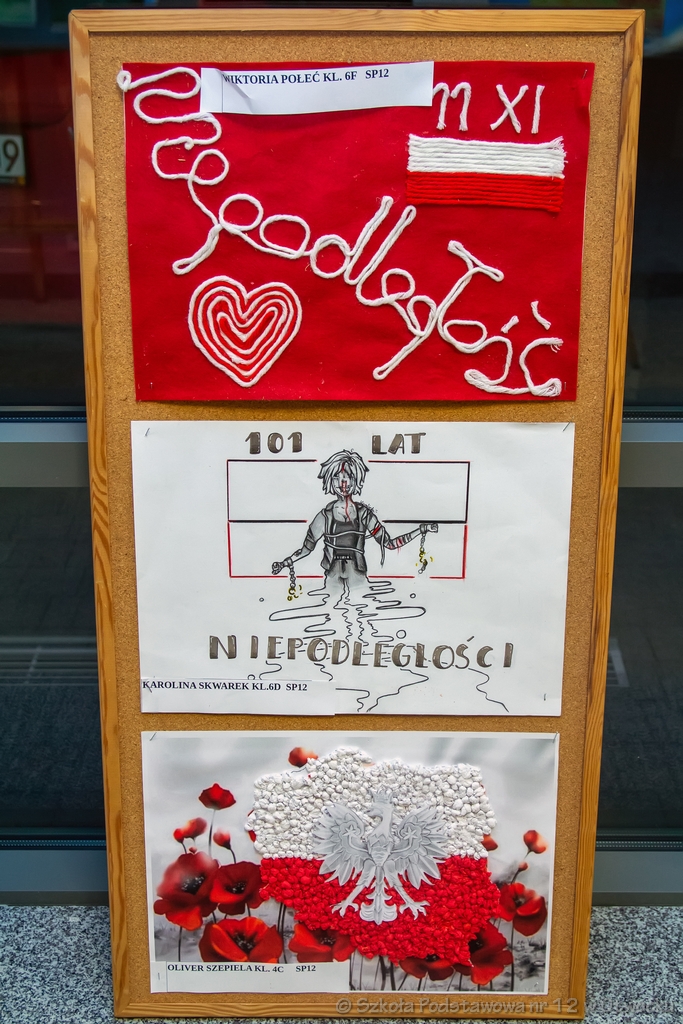 WIKTORIA POŁEĆ KL. 6F SP12
11 XI
Niepodległość
9
101 LAT
NIEPODLEGŁOŚCI
KAROLINA SKWAREK KL.6D SP12
OLIVER SZEPIELA KL. 4C SP12
© Szkoła Podstawowa nr 12